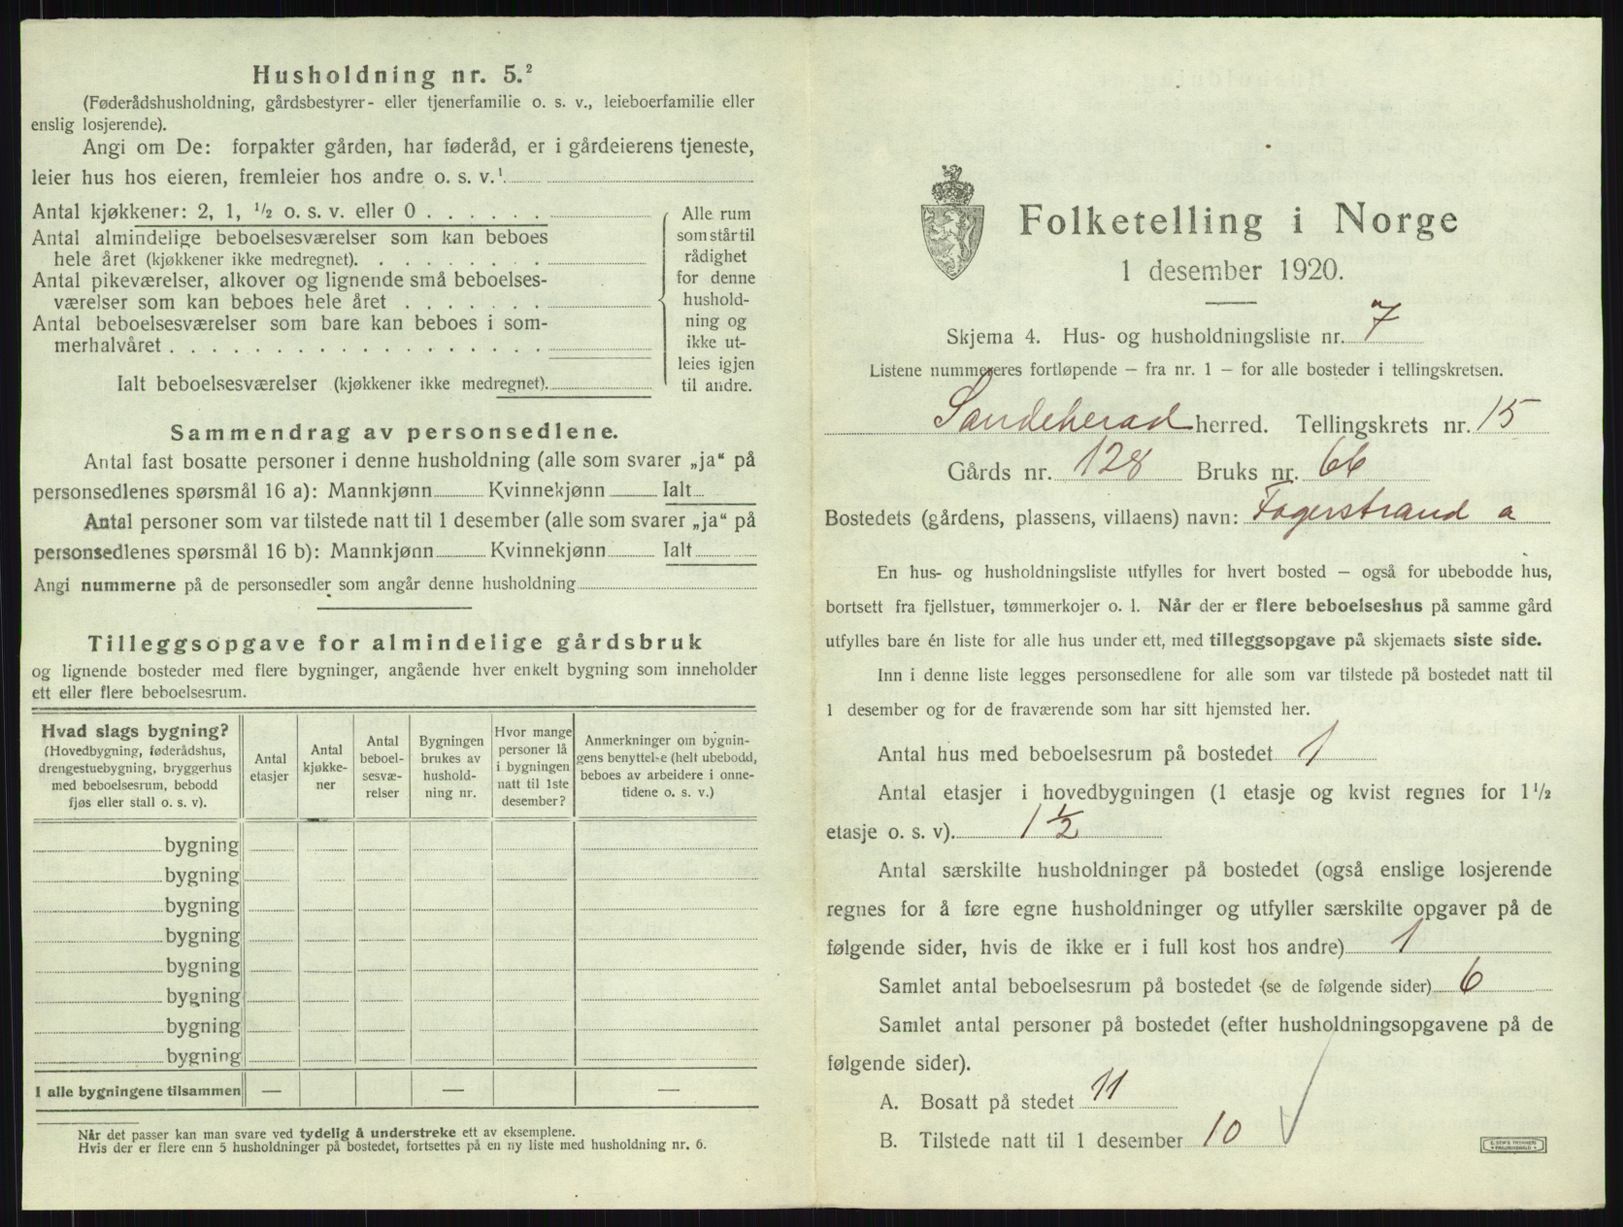 Husholdning nr. 5.²
(Føderådshusholdning, gårdsbestyrer- eller tjenerfamilie o. s. v., leieboerfamilie eller
enslig losjerende).
Angi om De: forpakter gården, har føderåd, er i gårdeierens tjeneste,
leier hus hos eieren, fremleier hos andre o. s. v.¹
Antal kjøkkener: 2, 1, ½ o. s. v. eller 0 . . . . . .
Antal almindelige beboelsesværelser som kan beboes
hele året (kjøkkener ikke medregnet). . . . . . . . .
Antal pikeværelser, alkover og lignende små beboelses-
værelser som kan beboes hele året . . . . . . .
Antal beboelsesværelser som bare kan beboes i som-
merhalvåret . . . . . . . . . . . . . . . . . .
Ialt beboelsesværelser (kjøkkener ikke medregnet).
Alle rum
som står til
rådighet
for denne
hushold-
ning og
ikke ut-
leies igjen
til andre.
Sammendrag av personsedlene.
Antal fast bosatte personer i denne husholdning (alle som svarer „ja“ på
personsedlenes spørsmål 16 a): Mannkjønn Kvinnekjønn Ialt
Antal personer som var tilstede natt til 1 desember (alle som svarer „ja“ på
personsedlenes spørsmål 16 b): Mannkjønn Kvinnekjønn Ialt
Angi nummerne på de personsedler som angår denne husholdning
Tilleggsopgave for almindelige gårdsbruk
og lignende bosteder med flere bygninger, angående hver enkelt bygning som inneholder
ett eller flere beboelsesrum.
Hvad slags bygning?
(Hovedbygning, føderådshus,
drengestuebygning, bryggerhus
med beboelsesrum, bebodd
fjøs eller stall o. s. v).
Antal
etasjer
Antal
kjøkke-
ner
Antal
beboel-
sesvæ-
relser
Bygningen
brukes av
hushold-
ning nr.
Hvor mange
personer lå
i bygningen
natt til 1ste
desember?
Anmerkninger om bygnin-
gens benyttelse (helt ubebodd,
beboes av arbeidere i onne-
tidene o. s. v.)
bygning
bygning
bygning
bygning
bygning
bygning
bygning
bygning
I alle bygningene tilsammen — — —
Når det passer kan man svare ved tydelig å understreke ett av eksemplene.
Hvis der er flere enn 5 husholdninger på bostedet, fortsettes på en ny liste med husholdning nr. 6.
Folketelling i Norge
1 desember 1920.
Skjema 4. Hus- og husholdningsliste nr. 7
Listene nummereres fortløpende — fra nr. 1 — for alle bosteder i tellingskretsen.
Sandeherad herred. Tellingskrets nr. 15
Gårds nr. 128 Bruks nr. 66
Bostedets (gårdens, plassens, villaens) navn: Fagerstrand a
En hus- og husholdningsliste utfylles for hvert bosted — også for ubebodde hus,
bortsett fra fjellstuer, tømmerkojer o. l. Når der er flere beboelseshus på samme gård
utfylles bare én liste for alle hus under ett, med tilleggsopgave på skjemaets siste side.
Inn i denne liste legges personsedlene for alle som var tilstede på bostedet natt til
1 desember og for de fraværende som har sitt hjemsted her.
Antal hus med beboelsesrum på bostedet 1
Antal etasjer i hovedbygningen (1 etasje og kvist regnes for 1½
etasje o. s. v). 1½
Antal særskilte husholdninger på bostedet (også enslige losjerende
regnes for å føre egne husholdninger og utfyller særskilte opgaver på de
følgende sider, hvis de ikke er i full kost hos andre) 1
Samlet antal beboelsesrum på bostedet (se de følgende sider) 6
Samlet antal personer på bostedet (efter husholdningsopgavene på de
følgende sider).
A. Bosatt på stedet 11
B. Tilstede natt til 1 desember 10